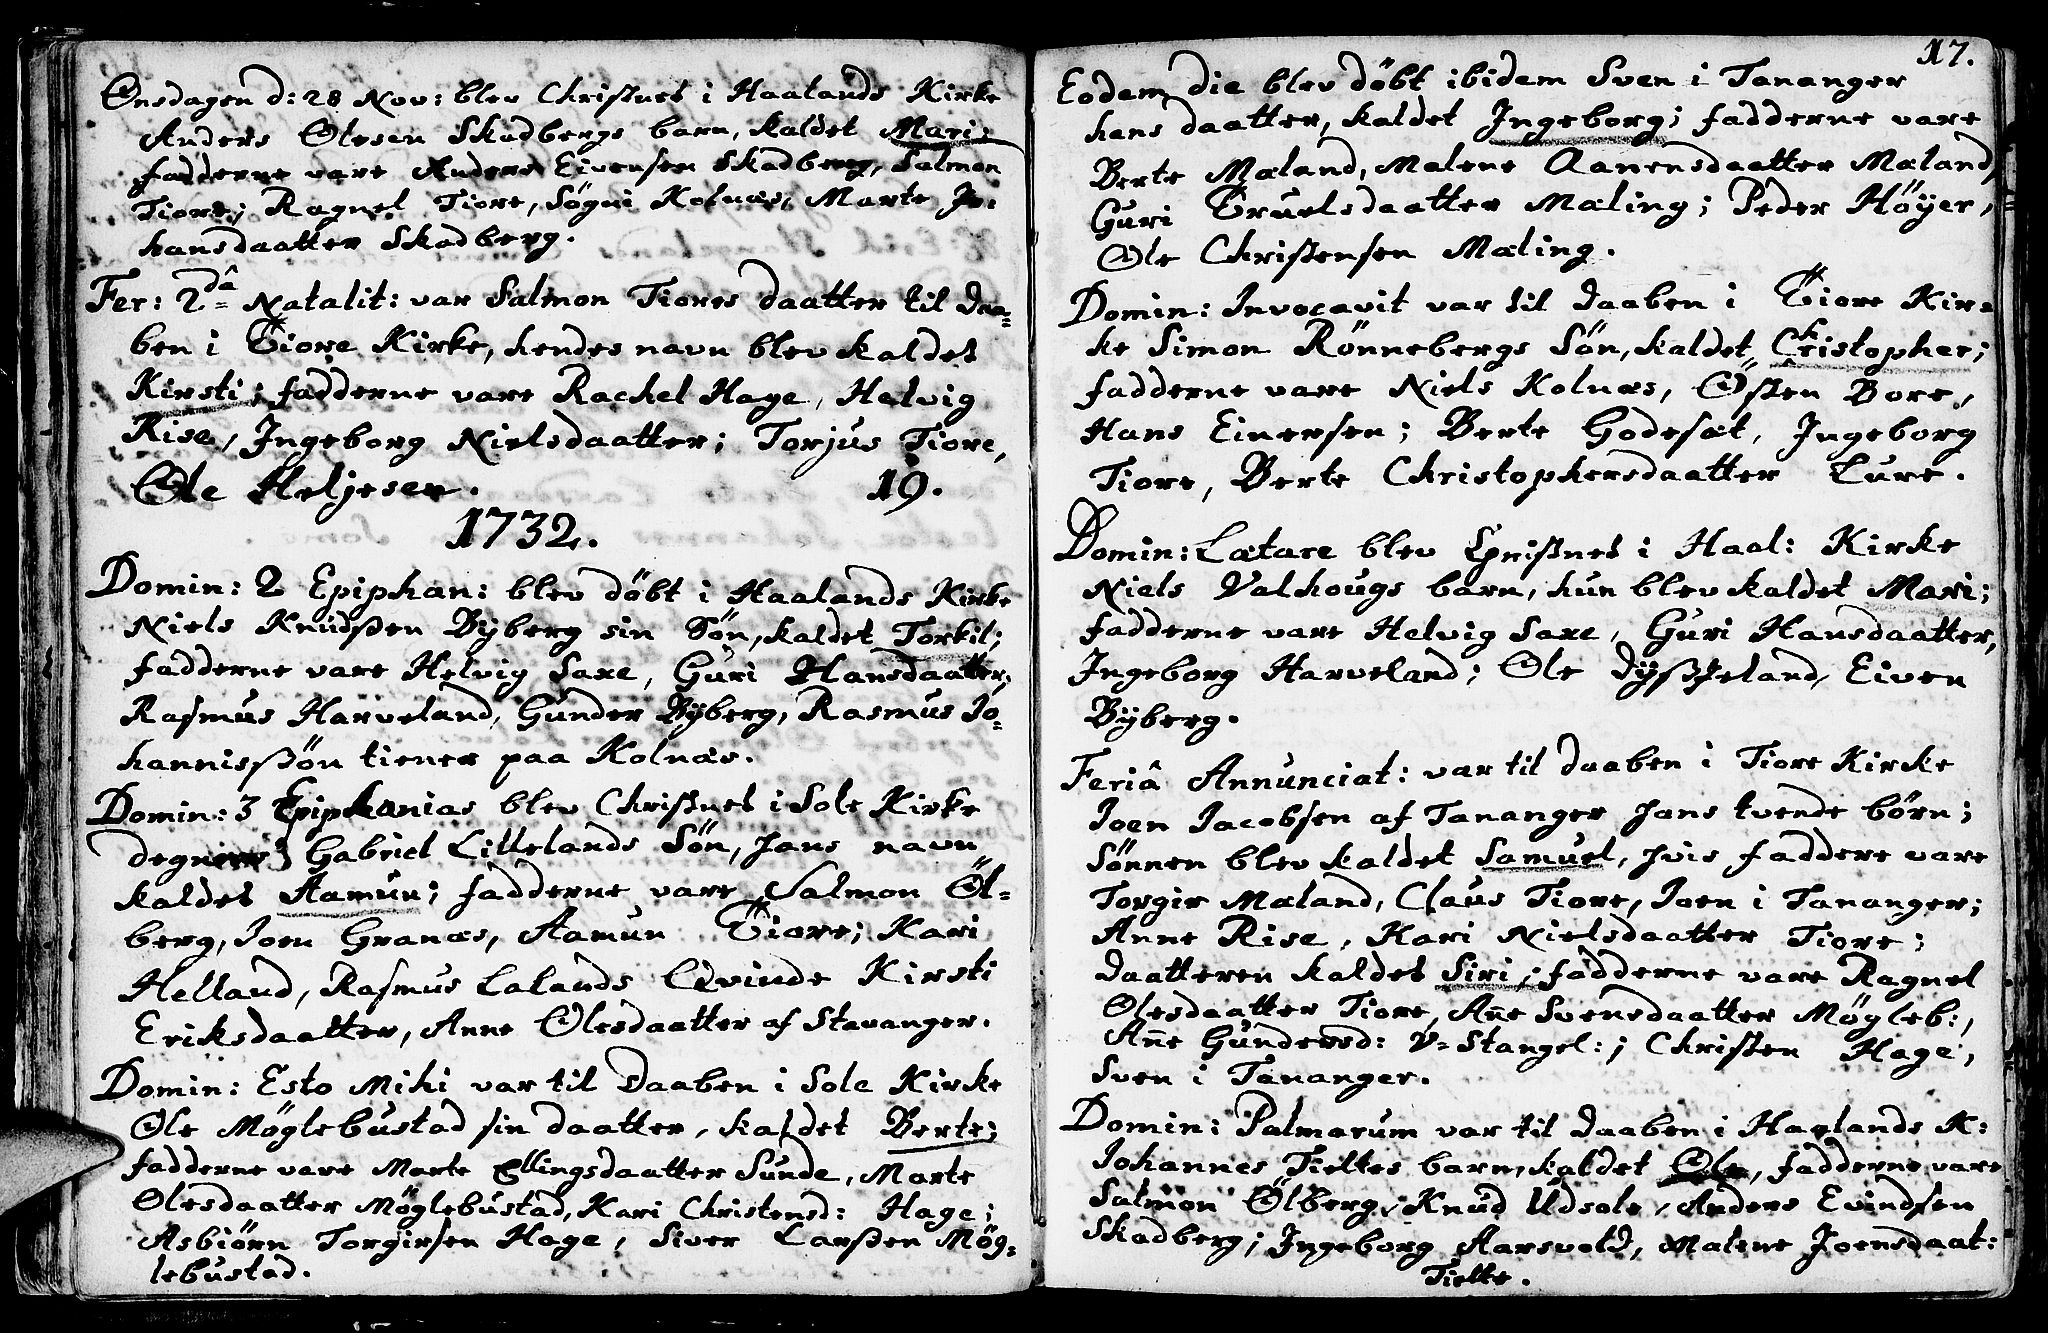 Onsdagen d: 28 Nov: blev Christnet i Haalands Kirke
Anders Olesen Skadbergs barn, kaldet Mari;
fadderne vare Anders Eivensen Skadberg, Salmon
Tiore; Ragnel Tiore, Sögni Kolnæs, Marte Jo:
hansdaatter Skadberg.
Fer: 2dâ Natalit: var Salmon Tiores daatter til Daa=
ben i Tiore Kirke, hendes navn blev kaldet
Kirsti; fadderne vare Rachel Hage, Helvig
Rise, Ingeborg Nielsdaatter; Torjus Tiore,
Ole Heljesen. 19.
1732.
Domin: 2 Epiphan: blev döbt i Haalands Kirke
Niels Knudssen Byberg sin Sön, kaldet Torkil;
fadderne vare Helvig Saxe, Guri Hansdaatter,
Rasmus Harveland, Gunder Byberg, Rasmus Jo=
hannissön tiener paa Kolnæs.
Domin: 3 Epiphanias blev Christnet i Sole Kirke
degnens Gabriel Lillelands Sön, hans navn
kaldet Aamun; fadderne vare Salmon Öl=
berg, Joen Granæs, Aamun Tiore; Kari
Helland, Rasmus Lalands Qvinde Kirsti
Eriksdaatter, Anne Olesdaatter af Stavanger.
Domin: Esto Mihi var til Daaben i Sole Kirke
Ole Möglebustad sin daatter, kaldet Berte;
fadderne vare Marte Ellingsdaatter Sunde, Marte
Olesdaatter Möglebustad, Kari Christensd: Hage;
Asbiörn Torgirsen Hage, Siver Larssen Mög=
lebustad.
17.
Eodem die blev döbt ibidem Sven i Tananger
hans daatter, kaldet Ingeborg; fadderne vare
Berte Mæland, Malene Aanensdaatter Mæland,
Guri Truelsdaatter Mæling; Peder Höyer,
Ole Christensen Mæling.
Domin: Invocavit var til Daaben i Tiore Kir=
ke Simon Rönnebergs Sön, kaldet Christopher;
fadderne vare Niels Kolnæs, Östen Bore,
Hans Einersen; Berte Godesæt, Ingeborg
Tiore, Berte Christophersdaatter Lure.
Domin: Lætare blev Christnet i Haal: Kirke
Niels Valhougs barn, hun blev kaldet Mari;
fadderne vare Helvig Saxe, Guri Hansdaatter,
Ingeborg Harveland; Ole Dysseland, Eiven
Byberg.
Feriâ Annunciat: var til Daaben i Tiore Kirke
Joen Jacobsen af Tananger hans tvende börn;
Sönnen blev kaldet Samuel, hvis faddere vare
Torgir Mæland, Claus Tiore, Joen i Tananger;
Anne Rise, Kari Nielsdaatter Tiore;
Daatteren kaldet Siri; fadderne vare Ragnel
Olesdaatter Tiore, Añe Svensdaatter Mögleb:,
Añe Gundersd: V= Stangel:; Christen Hage,
Sven i Tananger.
Domin: Palmarum var til Daaben i Haalands K:
Johannes Tieltes barn, kaldet Ole, fadderne vare
Salmon Ölberg, Knud Udsole, Anders Evindsen
Skadberg; Ingeborg Aarsvold, Malene Joensdaat:
Tielte.